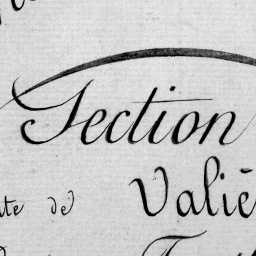 Section
te de Valiè